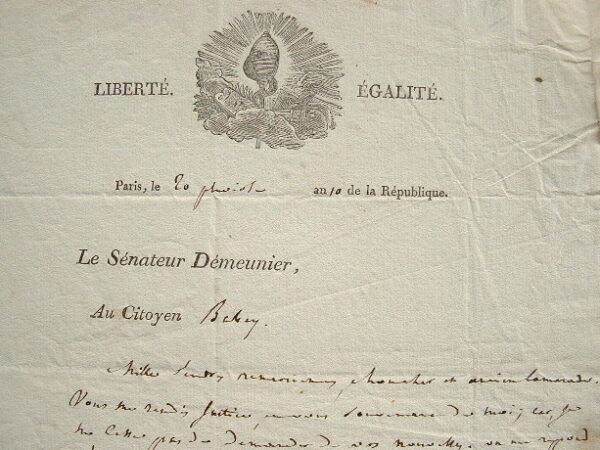 LIBERTÉ. ÉGALITÉ.
Paris, le 20 pluviose an 10 de la République.
Le Sénateur Démeunier,
Au Citoyen
Mille tendres remerciemens, mon cher et ancien camarade.
Vous me rendés justice en vous souvenant de moi, car je
ne cesse pas de demander de vos nouvelles. on me répond